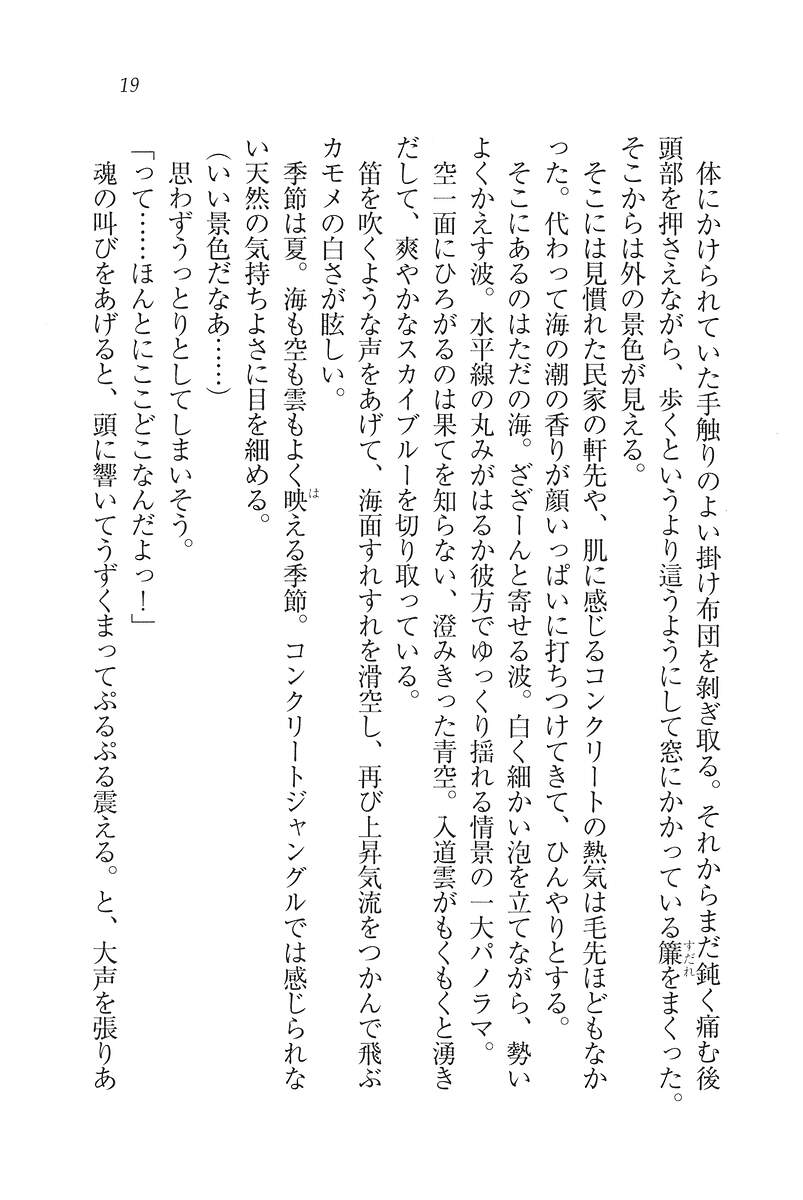 19
体にかけられていた手触りのよい掛け布団を剝ぎ取る。それからまだ鈍く痛む後
頭部を押さえながら、歩くというより這うようにして窓にかかっている簾をまくった。
すだれ
そこからは外の景色が見える。
そこには見慣れた民家の軒先や、肌に感じるコンクリートの熱気は毛先ほどもなか
った。代わって海の潮の香りが顔いっぱいに打ちつけてきて、ひんやりとする。
そこにあるのはただの海。ざざーんと寄せる波。白く細かい泡を立てながら、勢い
よくかえす波。水平線の丸みがはるか彼方でゆっくり揺れる情景の一大パノラマ。
空一面にひろがるのは果てを知らない、澄みきった青空。入道雲がもくもくと湧き
だして、爽やかなスカイブルーを切り取っている。
笛を吹くような声をあげて、海面すれすれを滑空し、再び上昇気流をつかんで飛ぶ
カモメの白さが眩しい。
季節は夏。海も空も雲もよく映える季節。コンクリートジャングルでは感じられな
は
い天然の気持ちよさに目を細める。
（いい景色だなぁ……）
思わずうっとりとしてしまいそう。
「って……ほんとにここどこなんだよっ！」
魂の叫びをあげると、頭に響いてうずくまってぷるぷる震える。と、大声を張りあ